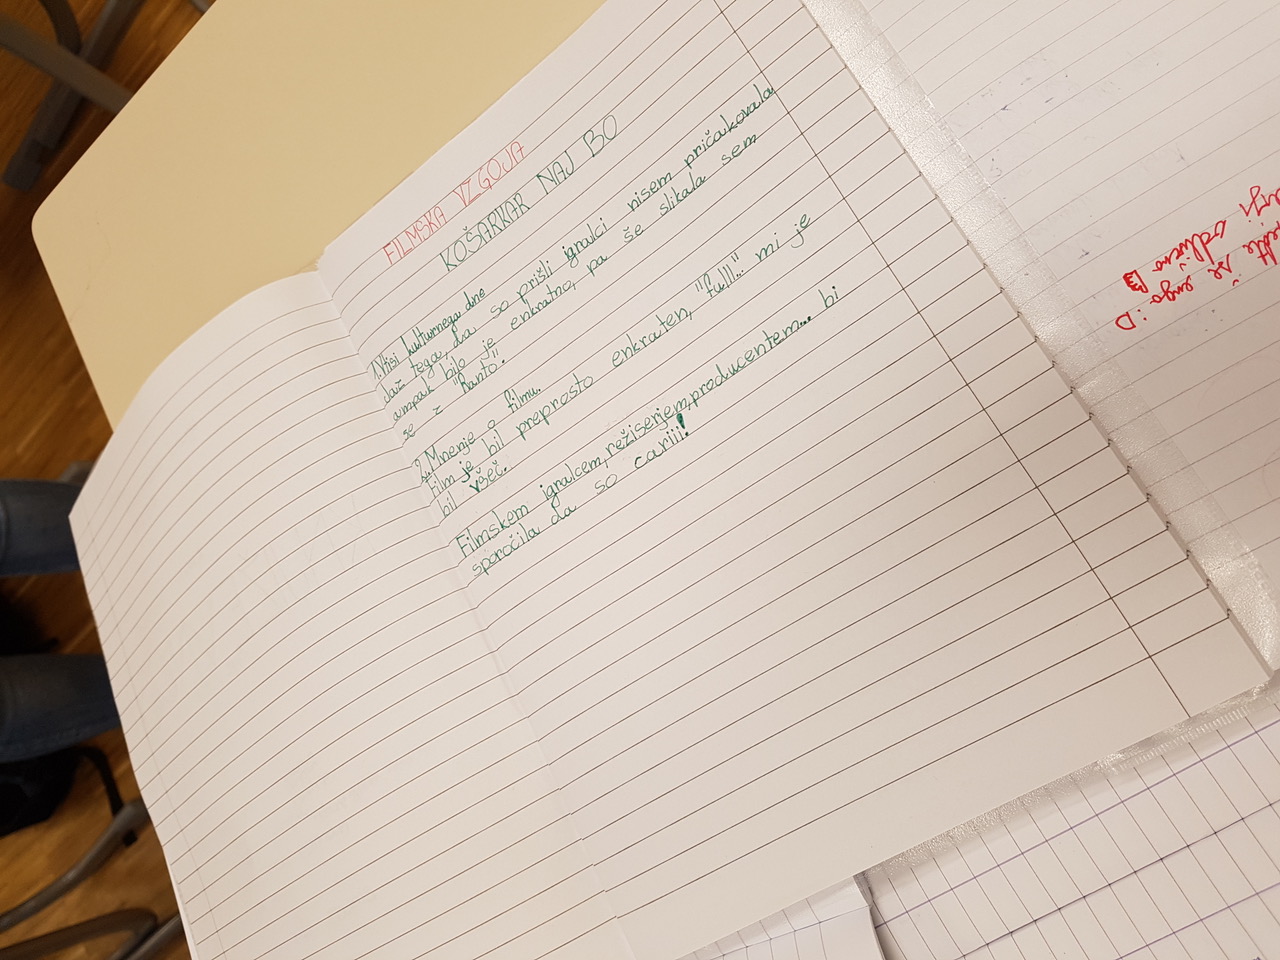 FILMSKA VZGOJA
KOŠARKAR NAJ BO
1. Vtisi kulturnega dne
Jaz tega, da so prišli igralci nisem pričakovala
ampak bilo je enkratno, pa še slikala sem
se z Ranto.
2. Mnenje o filmu.
Film je bil preprosto enkraten, "fulll" mi je
bil všeč.
Filmskem igralcem, režiserjem, producentem... bi
sporočila da so cariii!
odlično
še enga :D